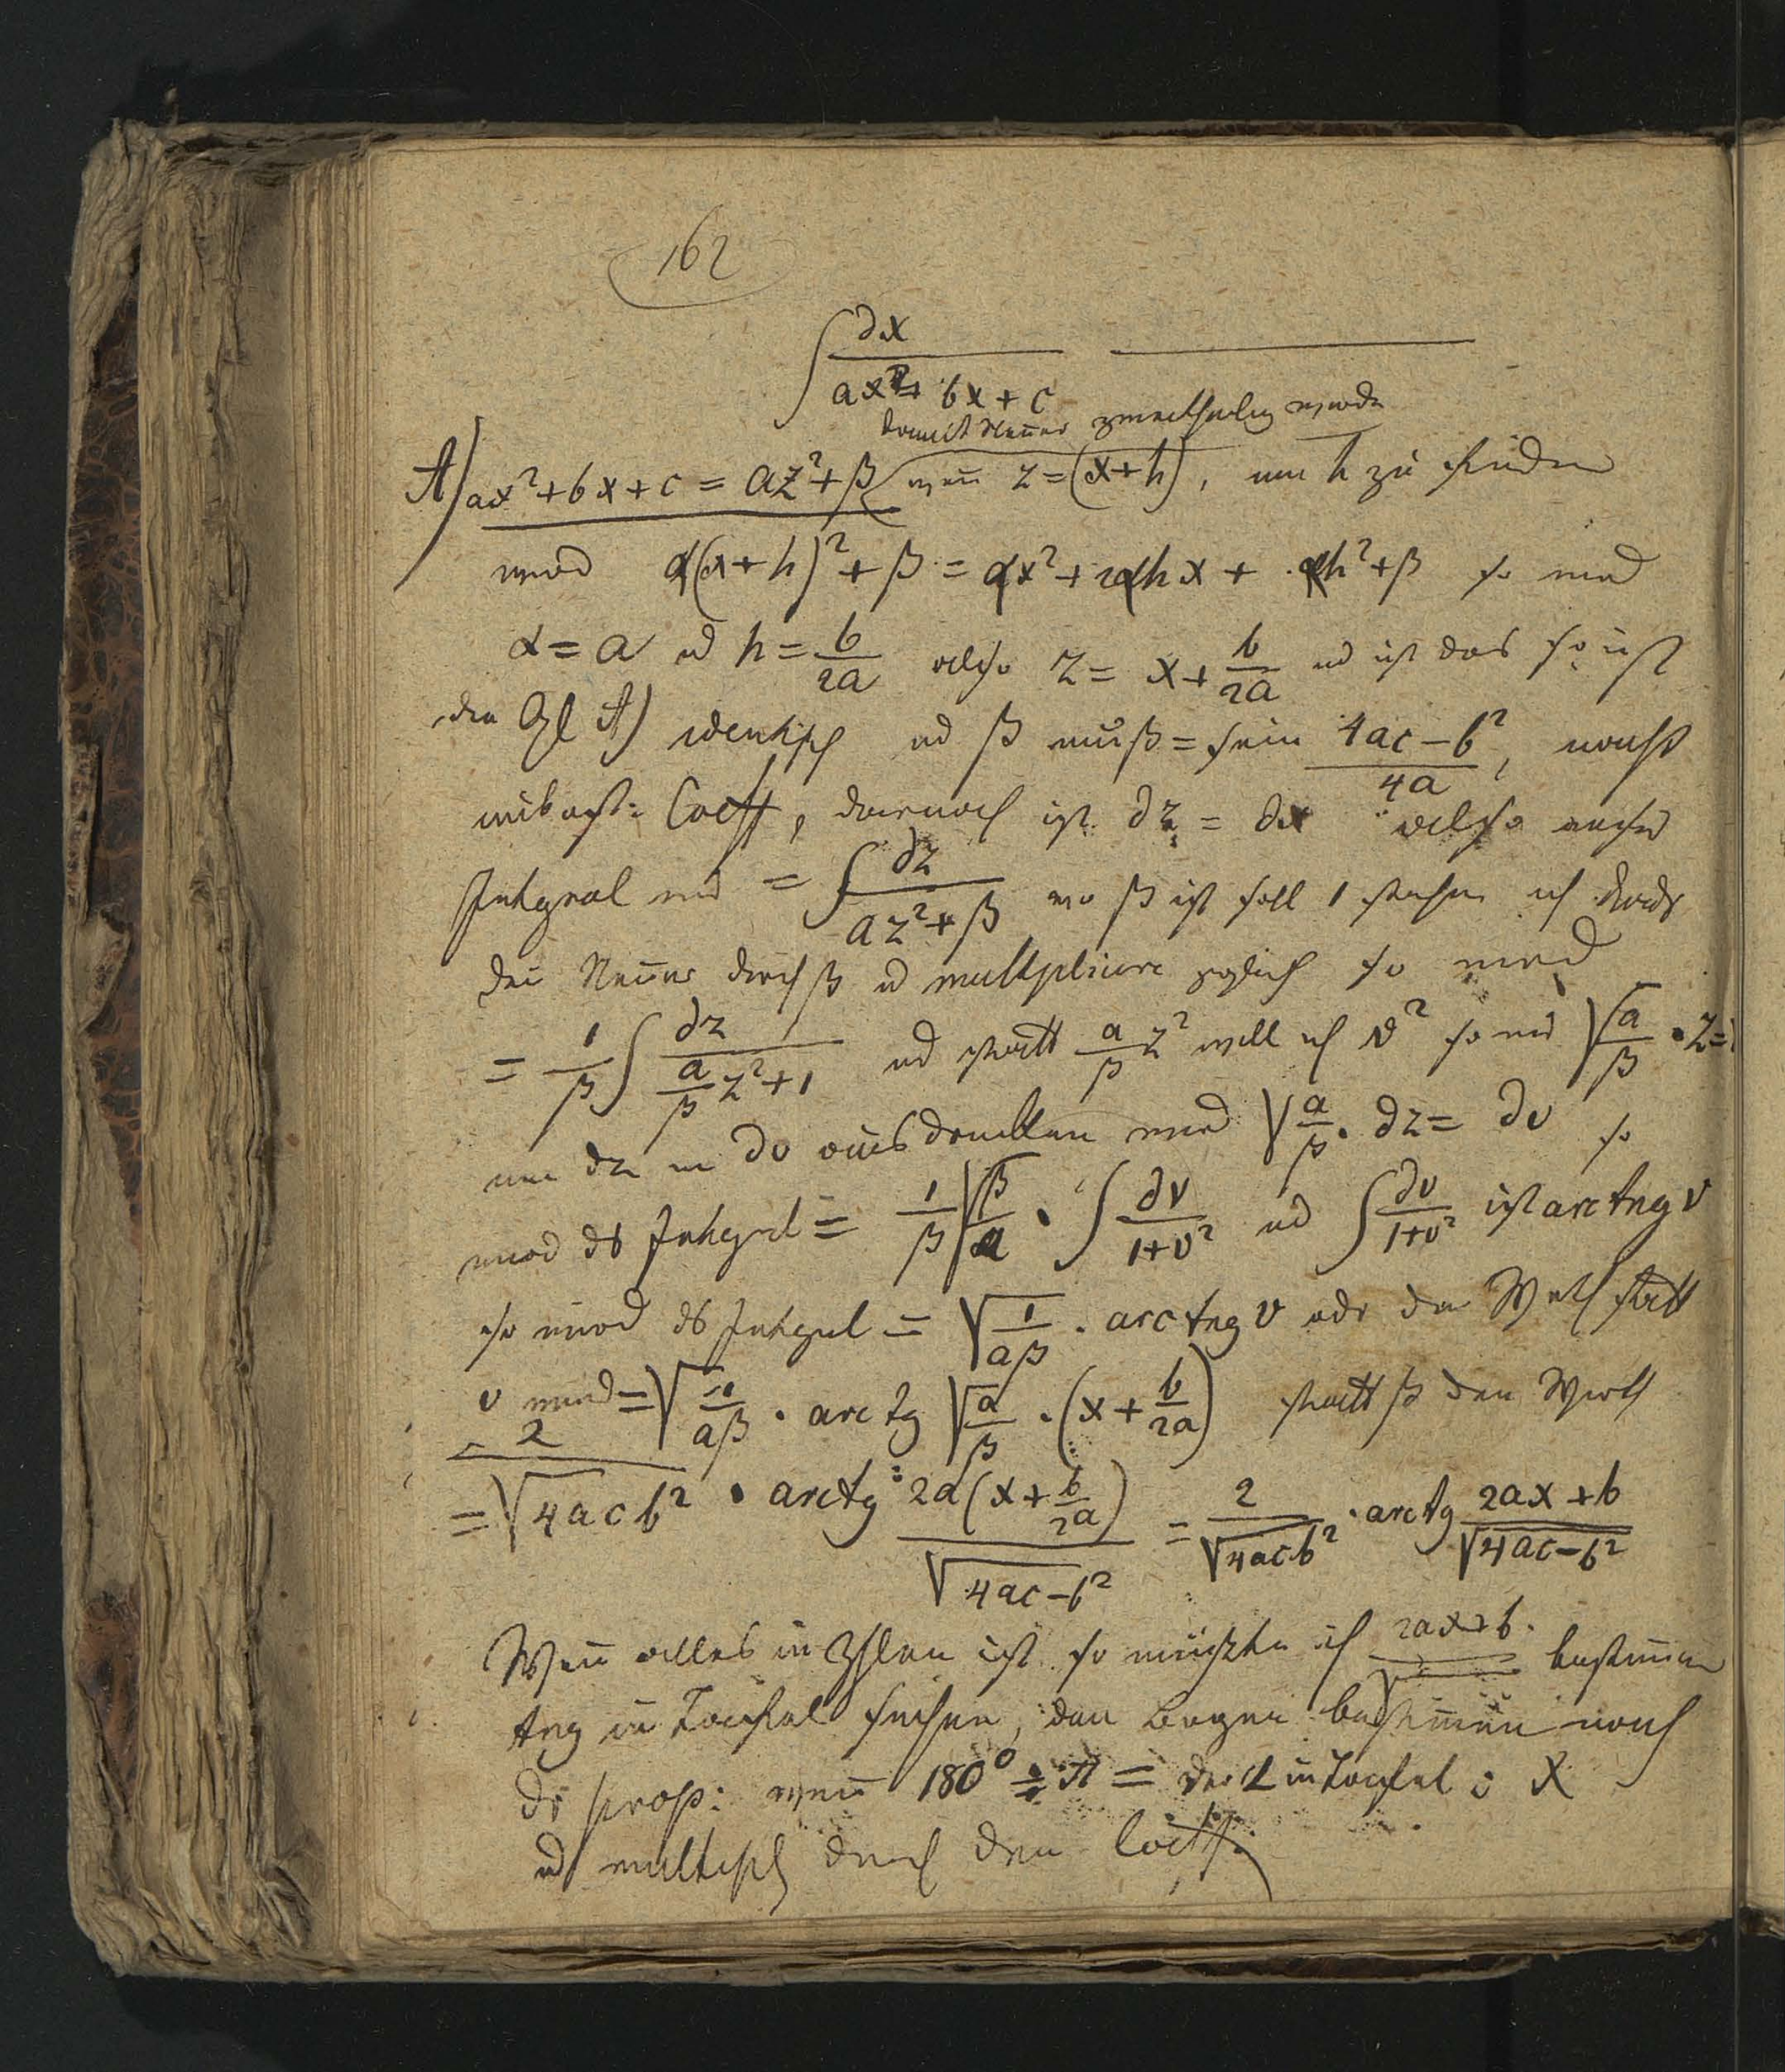 162
∫ ∂x / (ax² + bx + c)
damit Neñer zweitheilig werde
A) ax² + bx + c = az² + β weñ z = (x+h), um h zu finden
wird α(x+h)² + β = αx² + 2αhx + αh² + β so wird
α = a ud h = b/2a also z = x + b/2a ud ist das so ist
die Gl A) identisch ud β muß = sein (4ac − b²)/4a,
unbest: Coeff, darnach ist ∂z = ∂x also unser
Integral wird = ∫ ∂z / (az² + β) wo β ist soll 1 stehen ich
den Neñer durch β ud multiplicire zugleich so wird
= 1/β ∫ ∂z / (a/β z² + 1) ud statt a/β z² will ich v² so wird √(a/β) · z =
um ∂z in ∂v ausdrucken wird √(a/β) · ∂z = ∂v so
wird ds Integral = 1/β √(β/a) · ∫ ∂v/(1+v²) ud ∫ ∂v/(1+v²) ist arc tng v
so wird ds Integral = √(1/aβ) · arc tng v odr den Werth statt
v wird = √(1/aβ) · arc tg √(a/β) · (x + b/2a) statt β den Werth
= 2/√(4ac b²) · arctg 2a(x + b/2a)/√(4ac − b²) = 2/√(4ac b²) · arc tg (2ax + b)/√(4ac − b²)
Weñ alles in Zhlen ist so müsste ich (2ax+b)/√ bestim̄en
tng in Taufel suchen, den Bogen bestim̄en nach
dr prop: weñ 180° ÷ π = der ∠ in Taufel : X
ud multipl durch den Coeff.